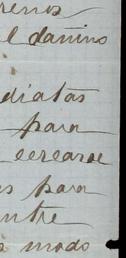 renos
el dañino
diatas
para
cercarse
as para
entre
modo